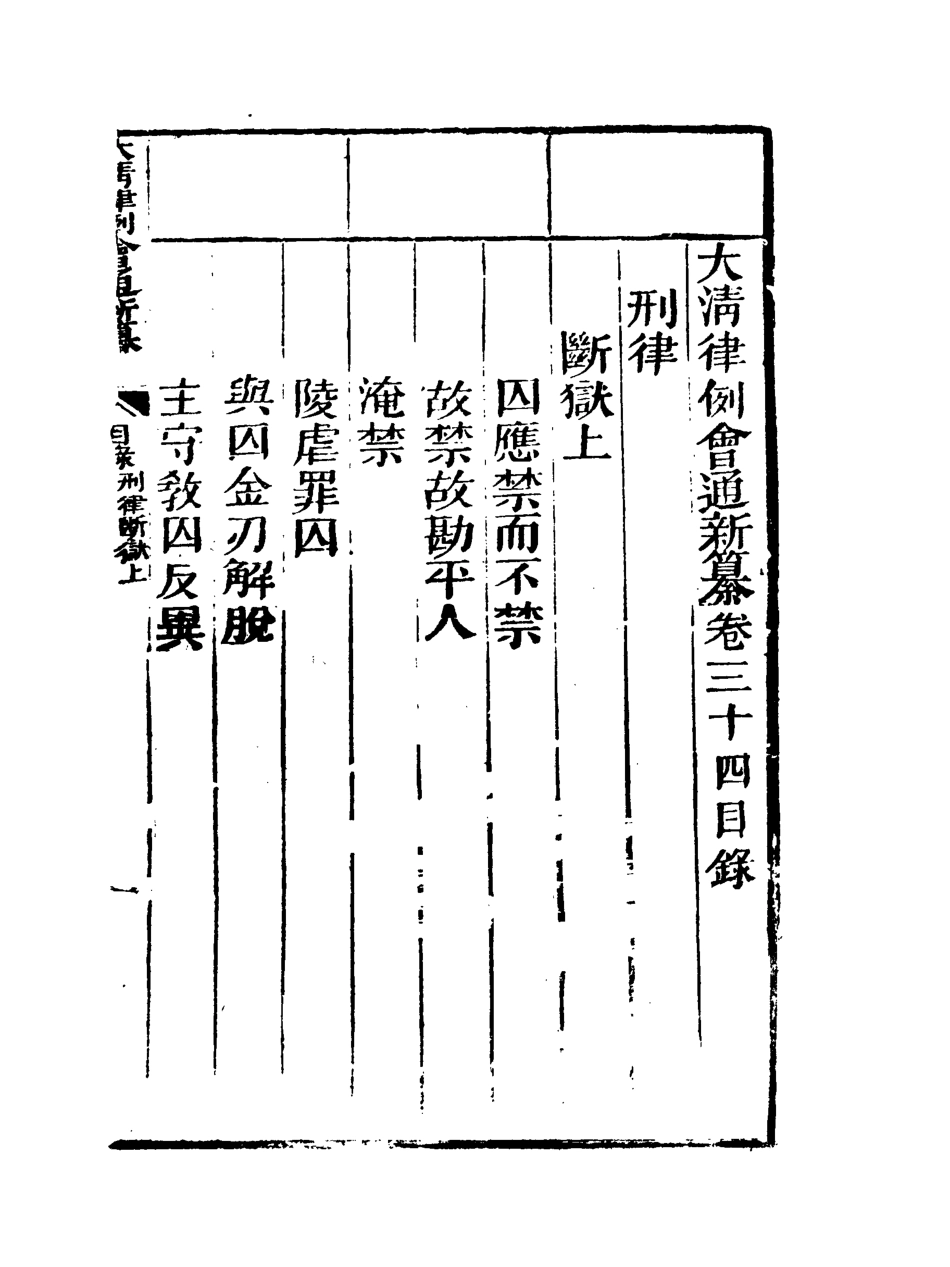 大淸律例會通新纂卷三十四目錄
刑律
斷獄上
囚應禁而不禁
故禁故勘平人
淹禁
陵虐罪囚
與囚金刃解脫
主守敎囚反異
大淸律例會通新纂
目錄刑律斷獄上
一